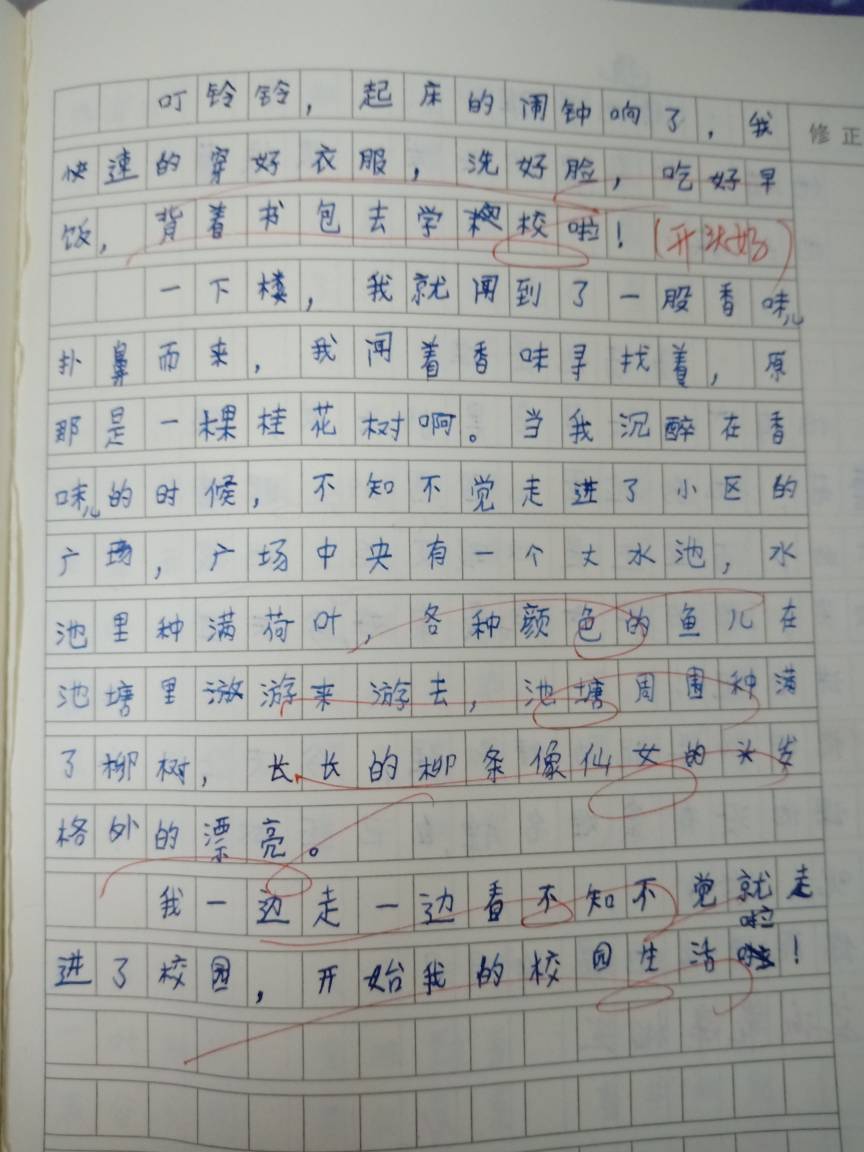 叮铃铃，起床的闹钟响了，我
修正
快速的穿好衣服，洗好脸，吃好早
饭，背着书包去学校啦！(开头好)
一下楼，我就闻到了一股香味儿
扑鼻而来，我闻着香味寻找着，原
那是一棵桂花树啊。当我沉醉在香
味儿的时候，不知不觉走进了小区的
广场，广场中央有一个大水池，水
池里种满荷叶，各种颜色的鱼儿在
池塘里游来游去，池塘周围种满
了柳树，长长的柳条像仙女的头发
格外的漂亮。
我一边走一边看不知不觉就走
进了校园，开始我的校园生活啦！